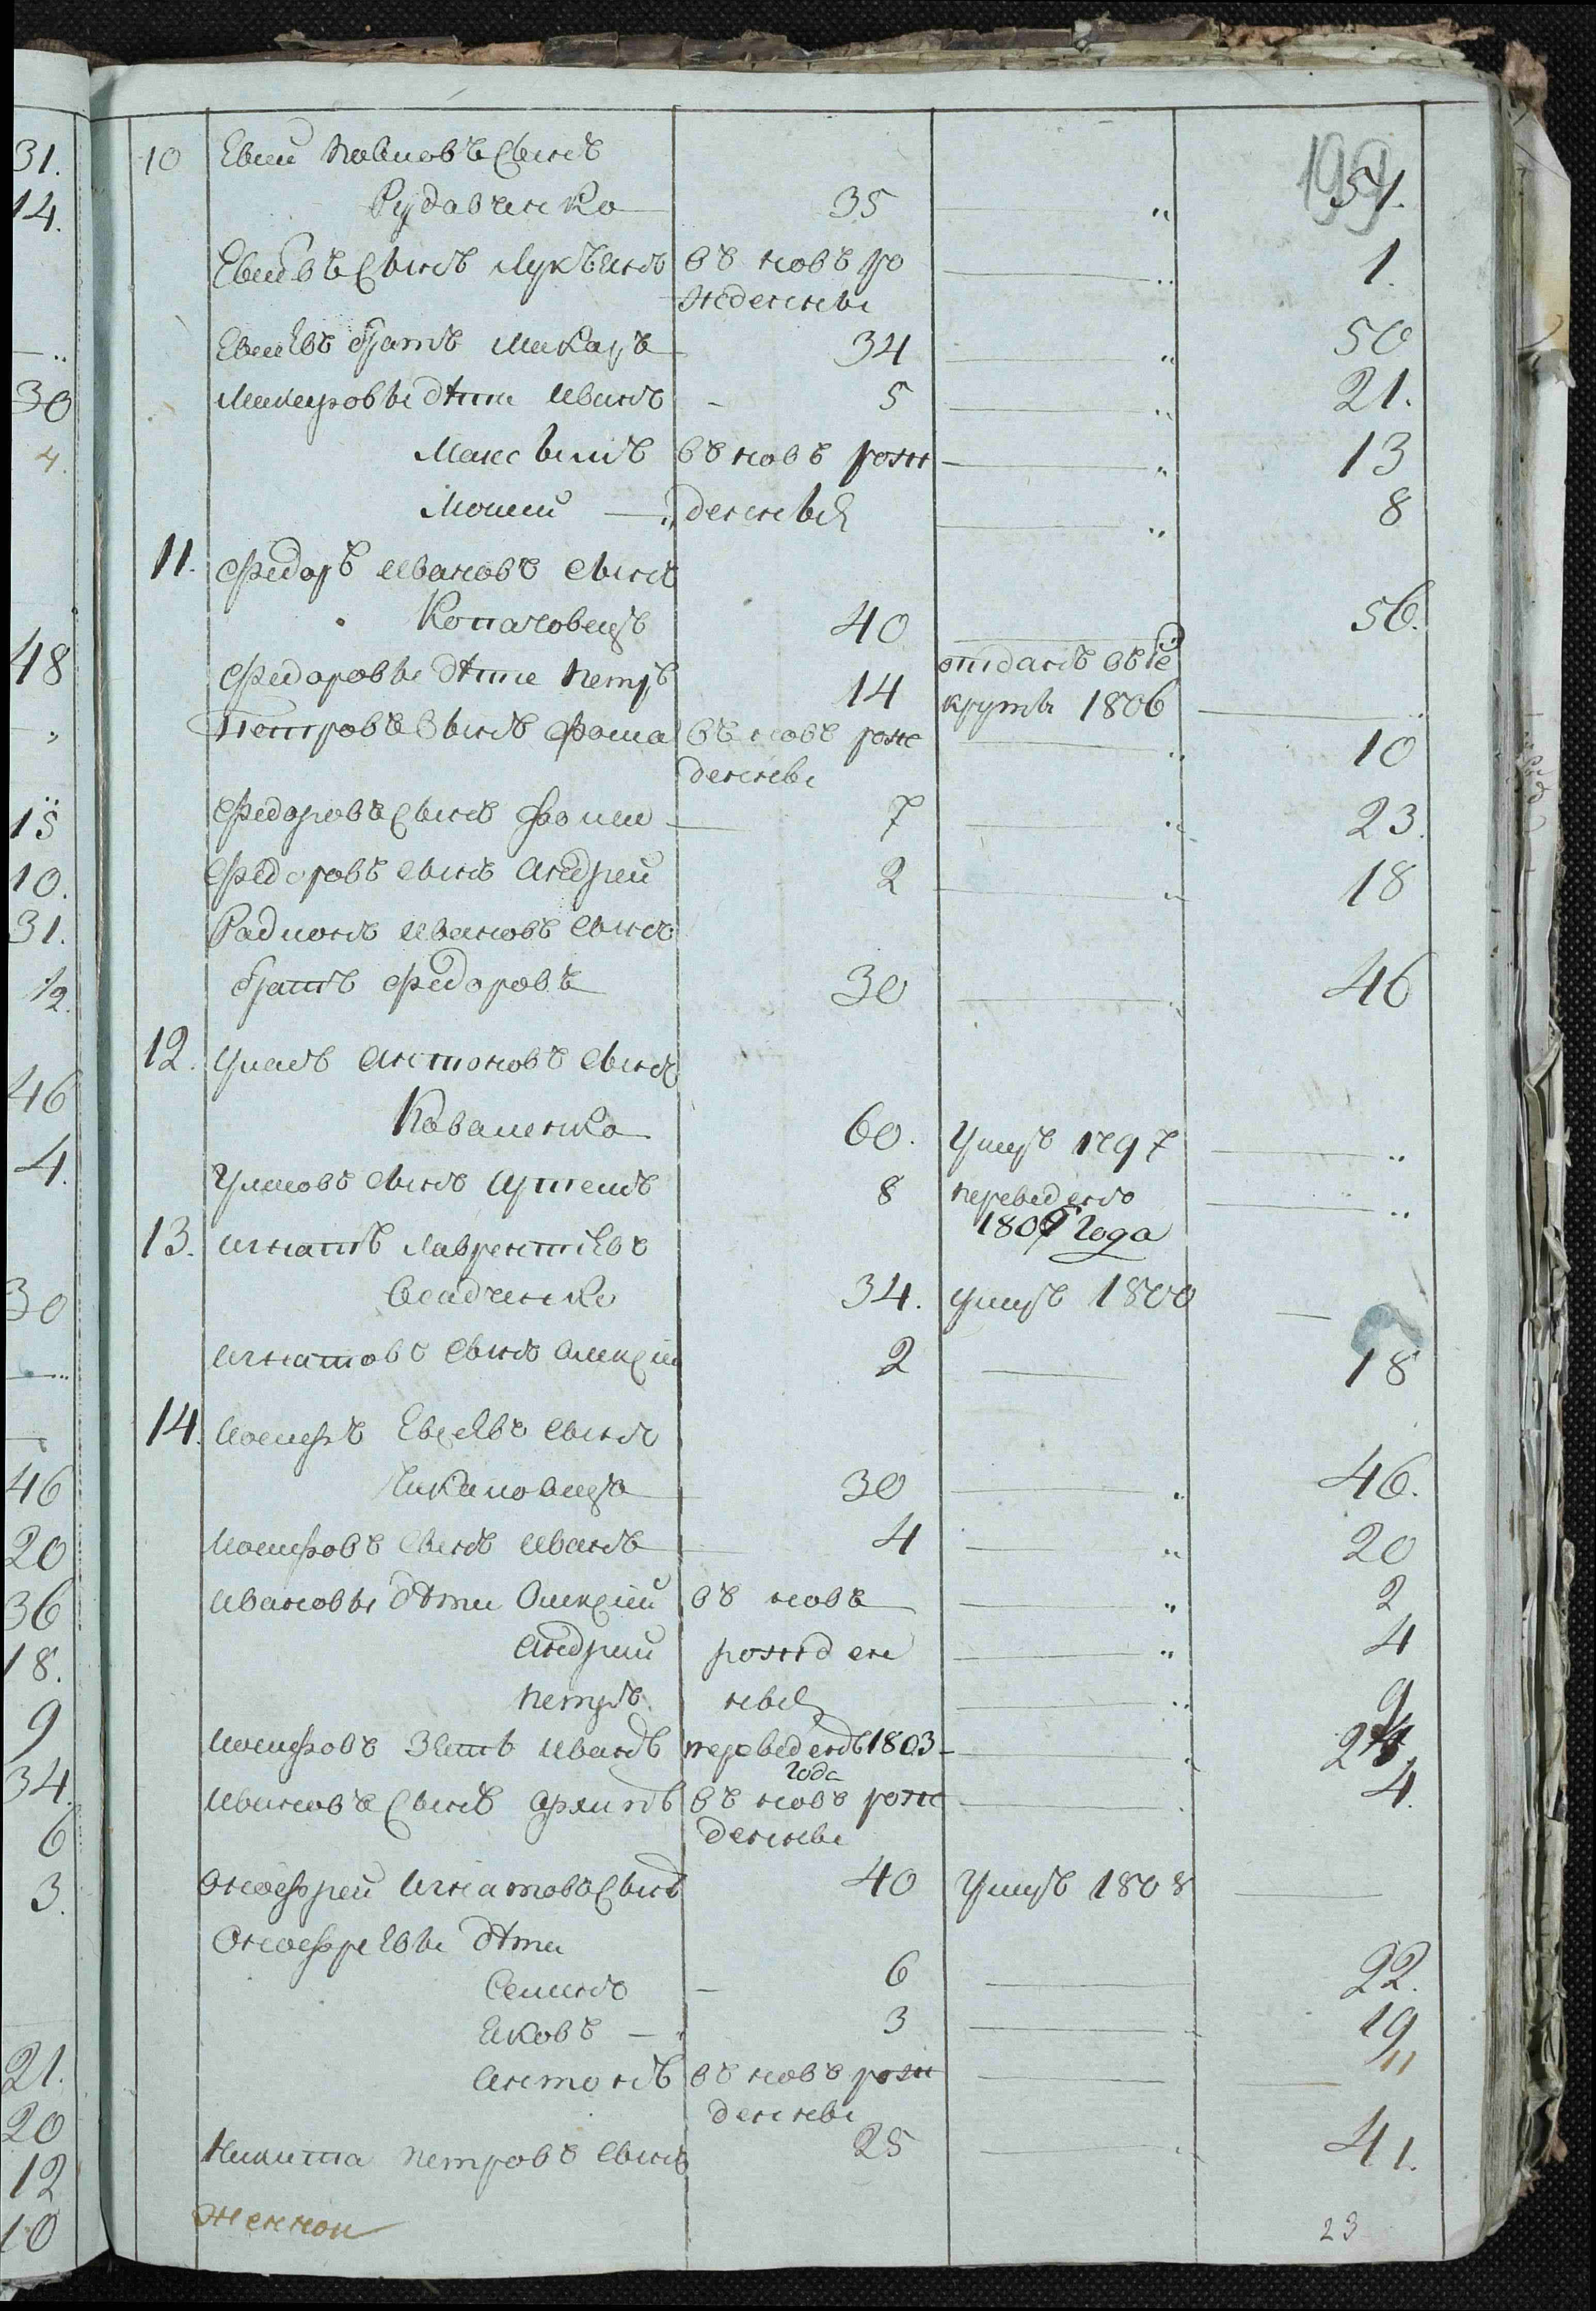 199
10 Евсей Павловъ Сынъ
Рудавченко 35 „ 51.
Евсеевъ Сынъ Лукьянъ въ новъ ро „ 1.
жденны
Евсеевъ братъ Макаръ 34 „ 50
Макаровы дѣти Иванъ - 5 „ 21.
Максымъ въ новъ рож „ 13
Мосей денныя „ 8
11. Федоръ Ивановъ Сынъ
Коначовецъ 40 „ 56.
Федоровы дѣти Петръ 14 отданъ въ ре
круты 1806 „
Петровъ Сынъ Фома въ новъ рож „ 10
денны
Федоровъ Сынъ Фома 7 „ 23.
Федоровъ Сынъ Андрей 2 „ 18
Радионъ Ивановъ Сынъ
братъ Федоровъ 30 „ 46
12. Уласъ Антоновъ Сынъ
Коваленко 60. Умеръ 1797 „
Уласовъ Сынъ Артемъ 8 переведенъ „
1809 года
13. Игнатъ Лаврентіевъ
34. умеръ 1800
Игнатовъ Сынъ Алексей 2 18
14. Иосифъ Евсеевъ Сынъ
30 „ 46.
Иосифовъ Сынъ Иванъ 4 „ 20
Ивановы дѣти Олексей въ новъ „ 2
Андрей рожден „ 4
Петръ ныя „ 9
Иосифовъ Зять Иванъ переведенъ 1803 „
года
Ивановъ Сынъ Архипъ въ новъ рож „ 4.
денны
Онофрей Игнатовъ Сынъ 40 Умеръ 1808
Онофреевы дѣти
Семенъ - 6 22.
Яковъ 3 19
Антонъ въ новъ рож 11
денны
Никита Петровъ Сынъ 25 41.
23
31.
14.
30
4.
48
15
10.
31.
1/2
46
4.
30
46
20
36
18.
9
34.
6
3.
21.
20
12
10